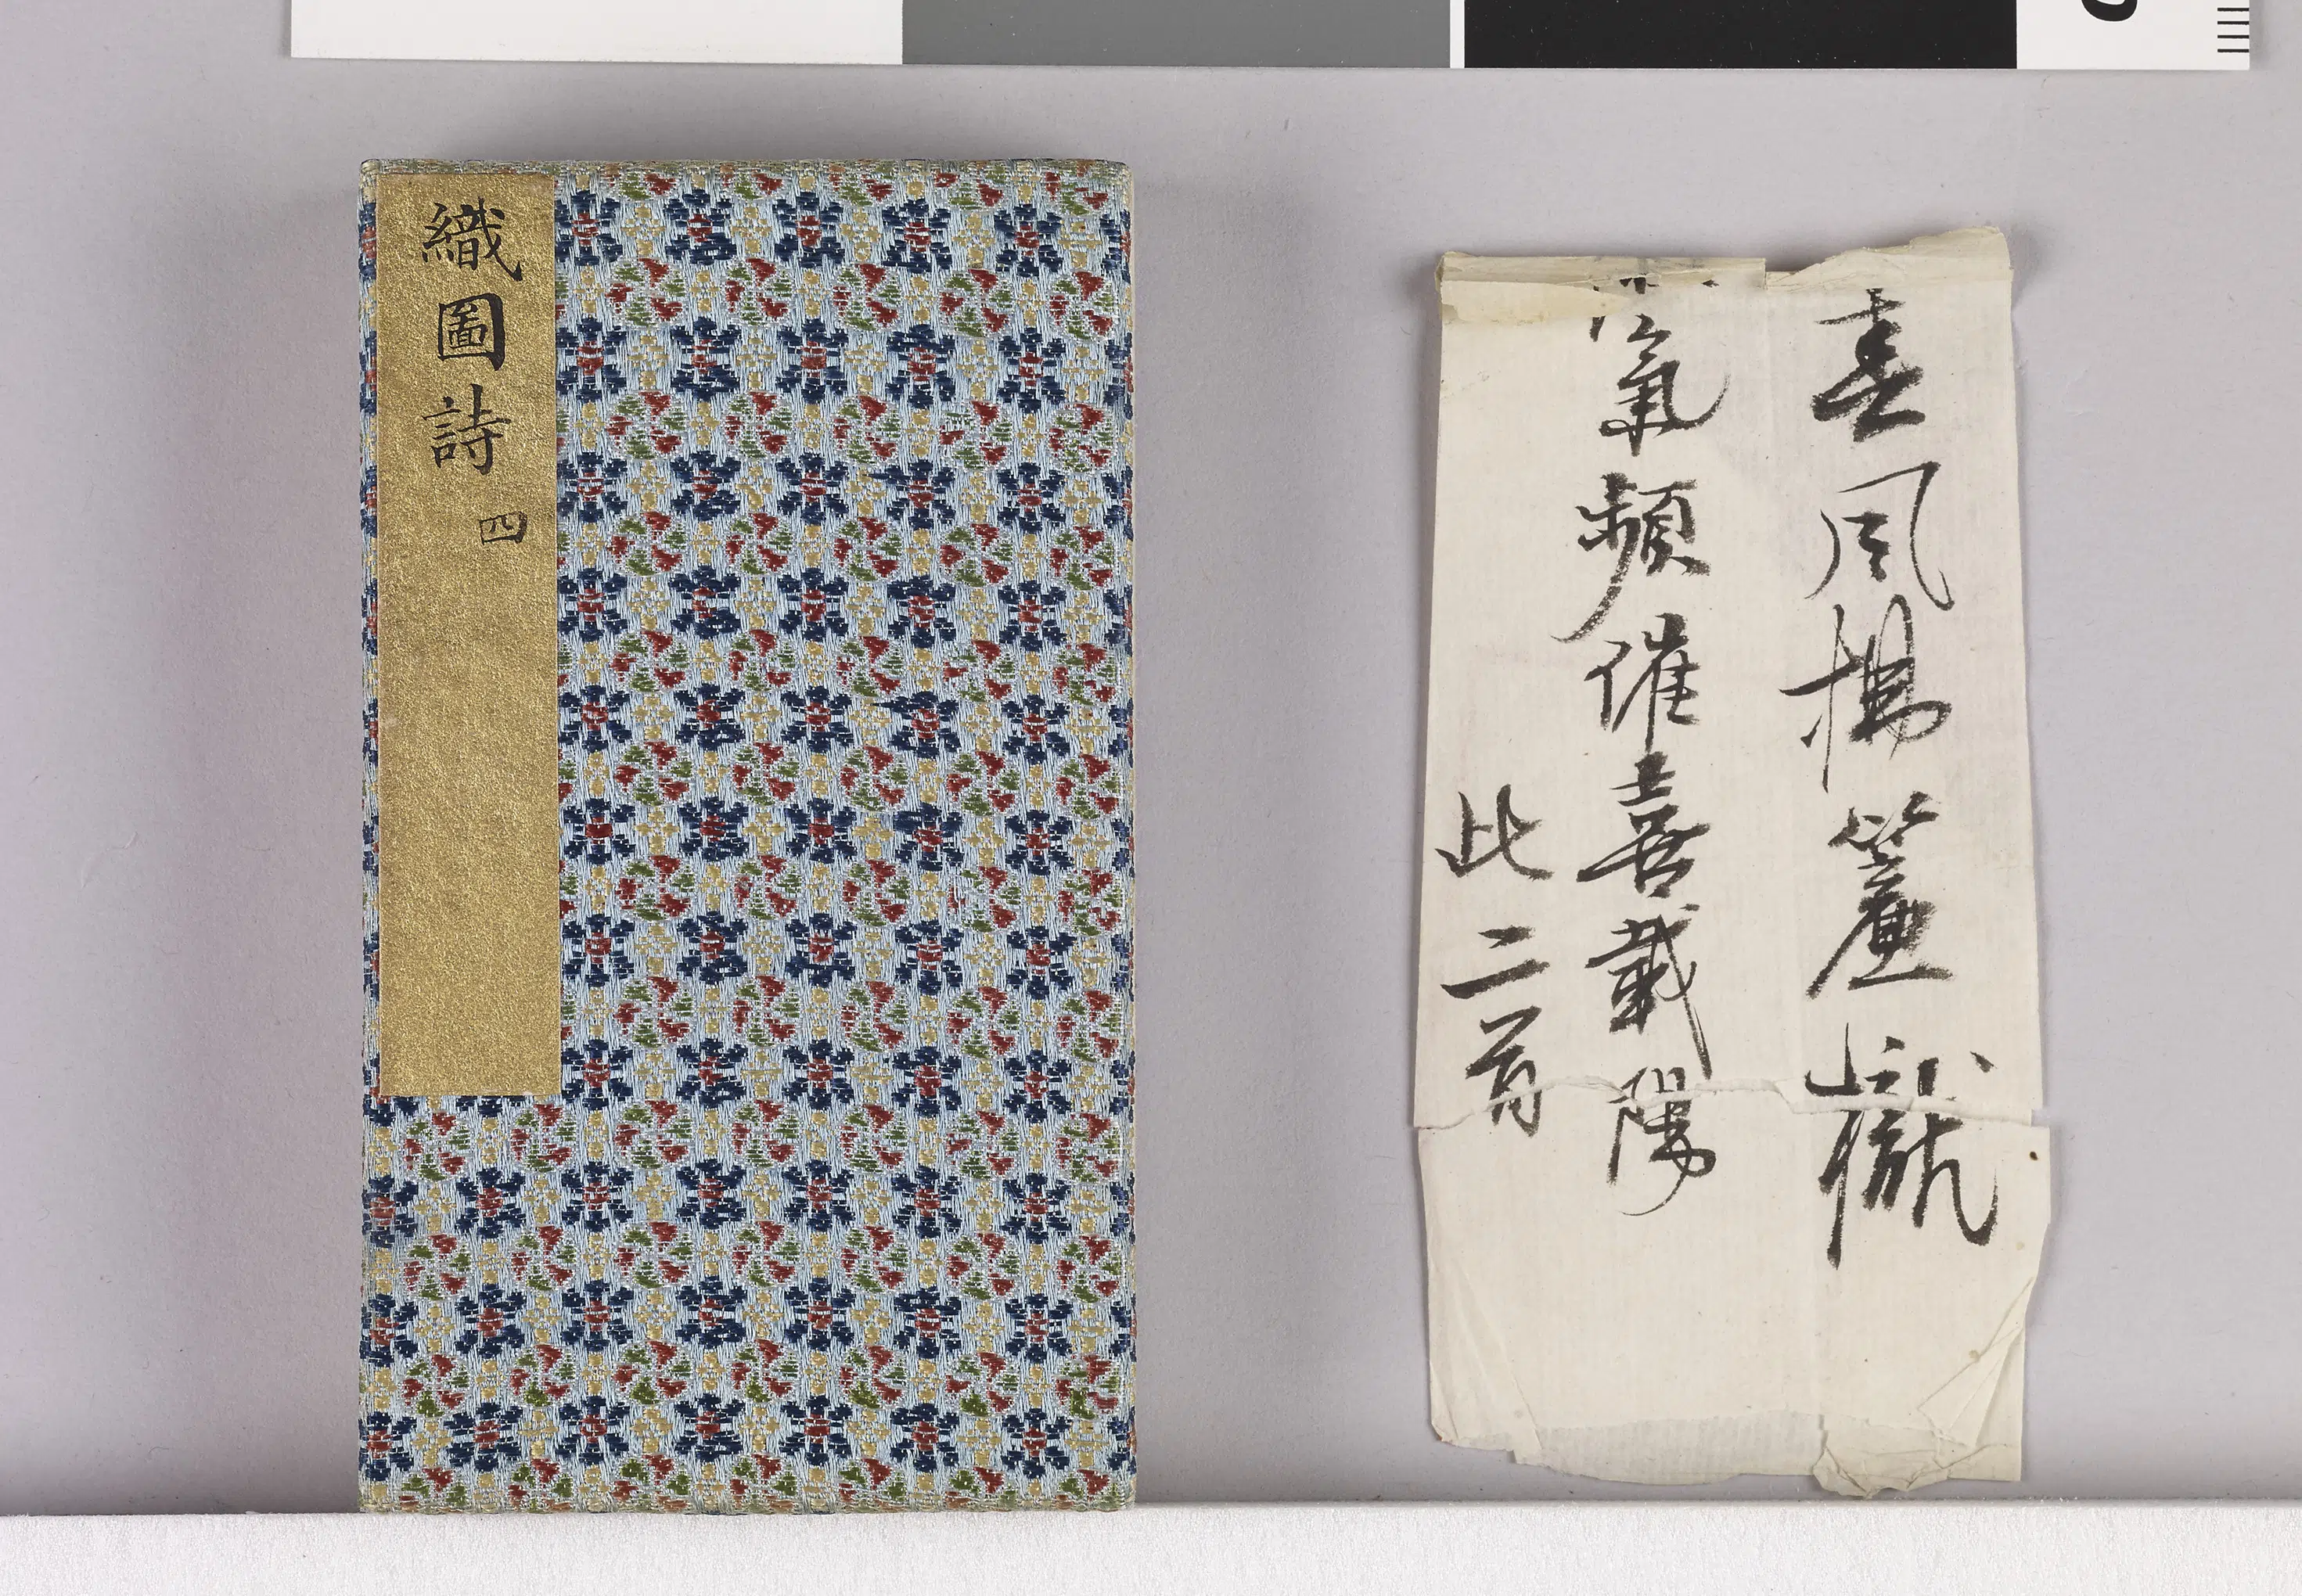 織圖詩
四
春風揚簾
氣頻催喜載陽
此二首